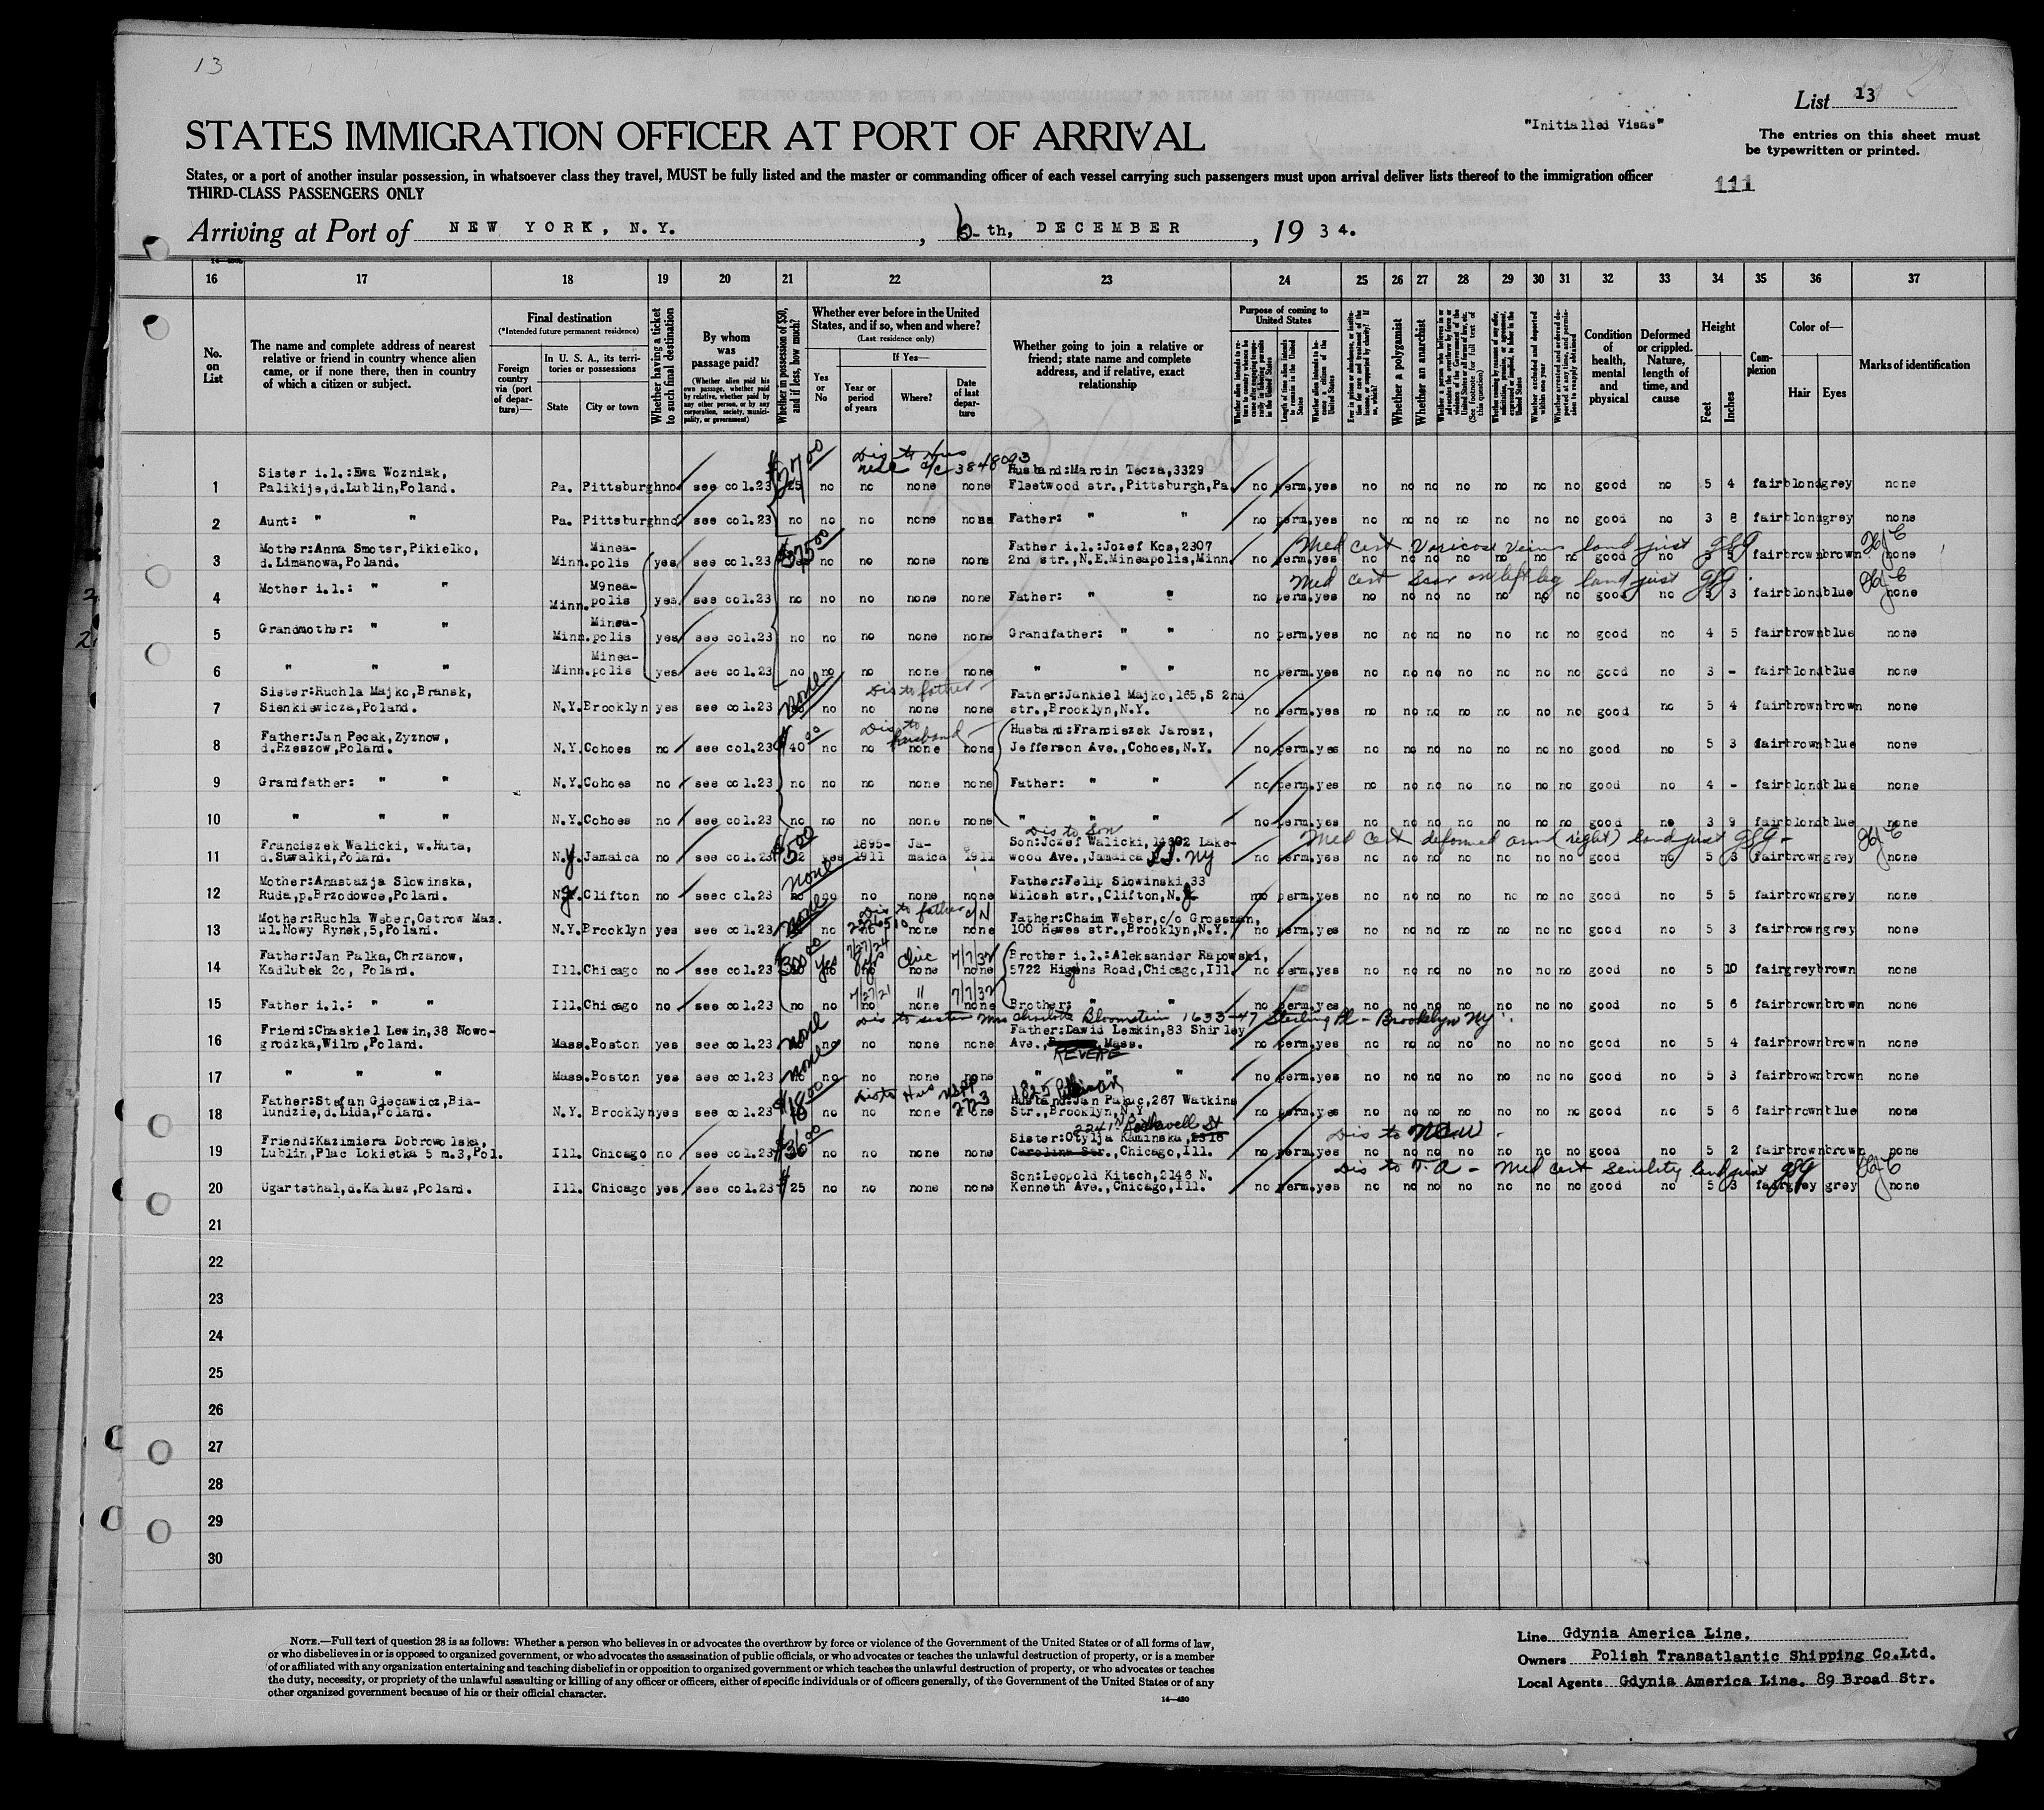 13
List 13
"Initialled Visas"
STATES IMMIGRATION OFFICER AT PORT OF ARRIVAL
The entries on this sheet must
be typewritten or printed.
States, or a port of another insular possession, in whatsoever class they travel, MUST be fully listed and the master or commanding officer of each vessel carrying such passengers must upon arrival deliver lists thereof to the immigration officer
THIRD-CLASS PASSENGERS ONLY
111
Arriving at Port of NEW YORK, N.Y. , 6-th, DECEMBER , 1934.
16 17 18 19 20 21 22 23 24 25 26 27 28 29 30 31 32 33 34 35 36 37
No. on List
The name and complete address of nearest relative or friend in country whence alien came, or if none there, then in country of which a citizen or subject.
Final destination
(*Intended future permanent residence)
Foreign country via (port of departure)—
In U. S. A., its territories or possessions
State City or town
Whether having a ticket to such final destination
By whom was passage paid?
(Whether alien paid his own passage, whether paid by relative, whether paid by any other person, or by any corporation, society, municipality, or government)
Whether in possession of $50, and if less, how much?
Whether ever before in the United States, and if so, when and where?
(Last residence only)
Yes or No
If Yes—
Year or period of years
Where?
Date of last departure
Whether going to join a relative or friend; state name and complete address, and if relative, exact relationship
Purpose of coming to United States
Whether a polygamist
Whether an anarchist
Condition of health, mental and physical
Deformed or crippled. Nature, length of time, and cause
Height
Feet Inches
Complexion
Color of—
Hair Eyes
Marks of identification
Dis to Hus
$27.00 c/c 3848093
1 Sister i.l.:Ewa Wozniak, Palikije,d.Lublin,Poland. Pa. Pittsburgh no see col.23 25 no no none none Husband:Marcin Tecza,3329 Fleetwood str.,Pittsburgh,Pa. no perm.yes no no no no no no no good no 5 4 fair blond grey none
2 Aunt: " " Pa. Pittsburgh no see col.23 no no no none none Father: " " no perm.yes no no no no no no no good no 3 8 fair blond grey none
$375.00
Med cert Varicose Veins land just
3 Mother:Anna Smoter,Pikielko, d.Limanowa,Poland. Minn. Minea-polis yes see col.23 no no none none Father i.l.:Jozef Kos,2307 2nd str.,N.E.Mineapolis,Minn. no perm.yes no no no no no no no good no 5 fair brown brown none
Med cert Scar on left leg land just
4 Mother i.l.: " " Minn. M9nea-polis yes see col.23 no no no none none Father: " " no perm.yes no no no no no no no good no 5 3 fair blond blue none
5 Grandmother: " " Minn. Minea-polis yes see col.23 no no no none none Grandfather: " " no perm.yes no no no no no no no good no 4 5 fair brown blue none
6 " " " Minn. Minea-polis yes see col.23 no no no none none " " " no perm.yes no no no no no no no good no 3 - fair blond blue none
none Dis to father
7 Sister:Ruchla Majko,Bransk, Sienkiewicza,Poland. N.Y. Brooklyn yes see col.23 no no no none none Father:Jankiel Majko,165,S 2nd str.,Brooklyn,N.Y. no perm.yes no no no no no no no good no 5 4 fair brown brown none
Dis to husband
8 Father:Jan Pecak,Zyznow, d.Rzeszow,Poland. N.Y. Cohoes no see col.23 $40.00 no no none none Husband:Franciszek Jarosz, Jefferson Ave.,Cohoes,N.Y. no perm.yes no no no no no no no good no 5 3 fair brown blue none
9 Grandfather: " " N.Y. Cohoes no see col.23 no no no none none Father: " " no perm.yes no no no no no no no good no 4 - fair blond blue none
10 " " " N.Y. Cohoes no see col.23 no no no none none " " " no perm.yes no no no no no no no good no 3 9 fair blond blue none
$5.00 Dis to Son Med cert deformed arm (right) land just
11 Franciszek Walicki, w.Huta, d.Suwalki,Poland. N.Y. Jamaica no see col.23 yes 1895-1911 Ja-maica 1911 Son:Jozef Walicki, Lake-wood Ave.,Jamaica NY no perm.yes no no no no no no no good no 5 3 fair brown grey none
none
12 Mother:Anastazja Slowinska, Ruda,p.Brzodowce,Poland. N.J. Clifton no seec ol.23 no no no none none Father:Felip Slowinski,33 Milosh str.,Clifton,N.J. no perm.yes no no no no no no no good no 5 5 fair brown grey none
none Dis to father c/N
13 Mother:Ruchla Weber,Ostrow Maz. ul.Nowy Rynek,5,Poland. N.Y. Brooklyn yes see col.23 no no none none Father:Chaim Weber,c/o Grossman, 100 Hewes str.,Brooklyn,N.Y. no perm.yes no no no no no no no good no 5 3 fair brown grey none
$300.00 yes 7/27/24 Chic 7/7/32
14 Father:Jan Palka,Chrzanow, Kadlubek 2o, Poland. Ill. Chicago no see col.23 no no none none Brother i.l.:Aleksander Rapowski, 5722 Higens Road,Chicago,Ill. no perm.yes no no no no no no no good no 5 10 fair grey brown none
7/27/21 " 7/7/32
15 Father i.l.: " " Ill. Chicago no see col.23 no no no none none Brother: " " no perm.yes no no no no no no no good no 5 6 fair brown brown none
none Dis to sister Mrs Charlotte Bloomstein 1633-47 Sterling Pl - Brooklyn NY
16 Friend:Chaskiel Lewin,38 Nowo-grodzka,Wilno,Poland. Mass. Boston yes see col.23 no no no none none Father:Dawid Lemkin,83 Shirley Ave., Mass. REVERE no perm.yes no no no no no no no good no 5 4 fair brown brown none
none
17 " " " Mass. Boston yes see col.23 no no no none none " " " no perm.yes no no no no no no no good no 5 3 fair brown brown none
$18.00 Dis to Hus 1825
18 Father:Stefan Giecawicz,Bia-lundzie,d.Lida,Poland. N.Y. Brooklyn yes see col.23 no no none none Husband:Jan Paluc,267 Watkins Str.,Brooklyn,N.Y. no perm.yes no no no no no no no good no 5 6 fair brown blue none
$36.00 2241 N Rockwell St Dis to
19 Friend:Kazimiera Dobrowolska, Lublin,Plac Lokietka 5 m.3,Pol. Ill. Chicago no see col.23 no no none none Sister:Otylja Kaminska,2316 Carolina Str.,Chicago,Ill. no perm.yes no no no no no no no good no 5 2 fair brown brown none
Dis to T.A - Med cert Senility land just
20 Ugartsthal,d.Kalusz,Poland. Ill. Chicago yes see col.23 $25 no no none none Son:Leopold Kitsch,2146 N. Kenneth Ave.,Chicago,Ill. no perm.yes no no no no no no no good no 5 3 fair grey grey none
21
22
23
24
25
26
27
28
29
30
NOTE.—Full text of question 28 is as follows: Whether a person who believes in or advocates the overthrow by force or violence of the Government of the United States or of all forms of law,
or who disbelieves in or is opposed to organized government, or who advocates the assassination of public officials, or who advocates or teaches the unlawful destruction of property, or is a member
of or affiliated with any organization entertaining and teaching disbelief in or opposition to organized government or which teaches the unlawful destruction of property, or who advocates or teaches
the duty, necessity, or propriety of the unlawful assaulting or killing of any officer or officers, either of specific individuals or of officers generally, of the Government of the United States or of any
other organized government because of his or their official character.
14—430
Line Gdynia America Line.
Owners Polish Transatlantic Shipping Co.Ltd.
Local Agents Gdynia America Line. 89 Broad Str.